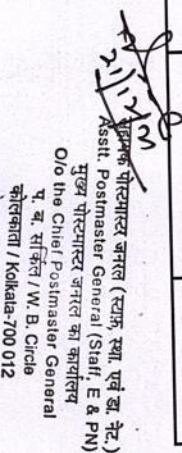 21/12/21
सहायक पोस्टमास्टर जनरल (स्टाफ, स्था. एवं डा. नेट.)
Asstt. Postmaster General (Staff, E & PN)
मुख्य पोस्टमास्टर जनरल का कार्यालय
O/o the Chief Postmaster General
प. बं. सर्किल / W. B. Circle
कोलकाता / Kolkata-700 012